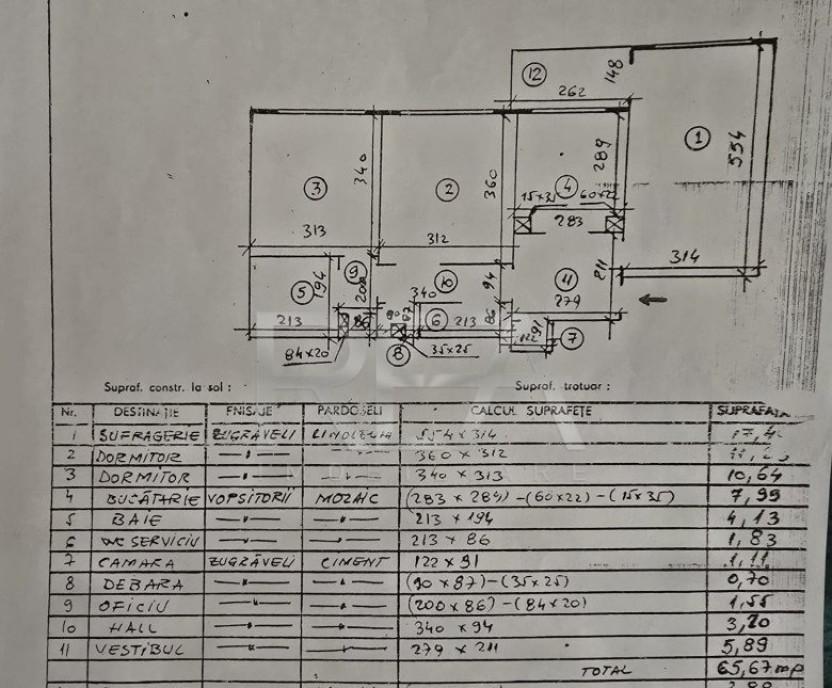 12
262
148
1
554
3
340
2
360
289
15x35
4
60x22
313
312
283
314
5
194
9
200
10
340
94
11
279
211
213
86
90
87
6
213
86
122
91
7
84x20
8
35x25
Supraf. constr. la sol :
Supraf. trotuar :
Nr. DESTINAȚIE FNISAJE PARDOSELI CALCUL SUPRAFEȚE SUPRAFAȚA
1 SUFRAGERIE ZUGRĂVELI 554 x 314
2 DORMITOR —"— 360 x 312
3 DORMITOR —"— 340 x 313 10,64
4 BUCĂTARIE VOPSITORII MOZAIC (283 x 289) -(60x22) -(15x35) 7,99
5 BAIE —"— —"— 213 x 194 4,13
6 WC SERVICIU —"— —"— 213 x 86 1,83
7 CAMARA ZUGRĂVELI CIMENT 122 x 91 1,11
8 DEBARA —"— —"— (90 x 87)-(35x25) 0,70
9 OFICIU —"— —"— (200 x 86) -(84x20) 1,55
10 HALL —"— —"— 340 x 94 3,20
11 VESTIBUL —"— —"— 279 x 211 5,89
TOTAL 65,67 mp